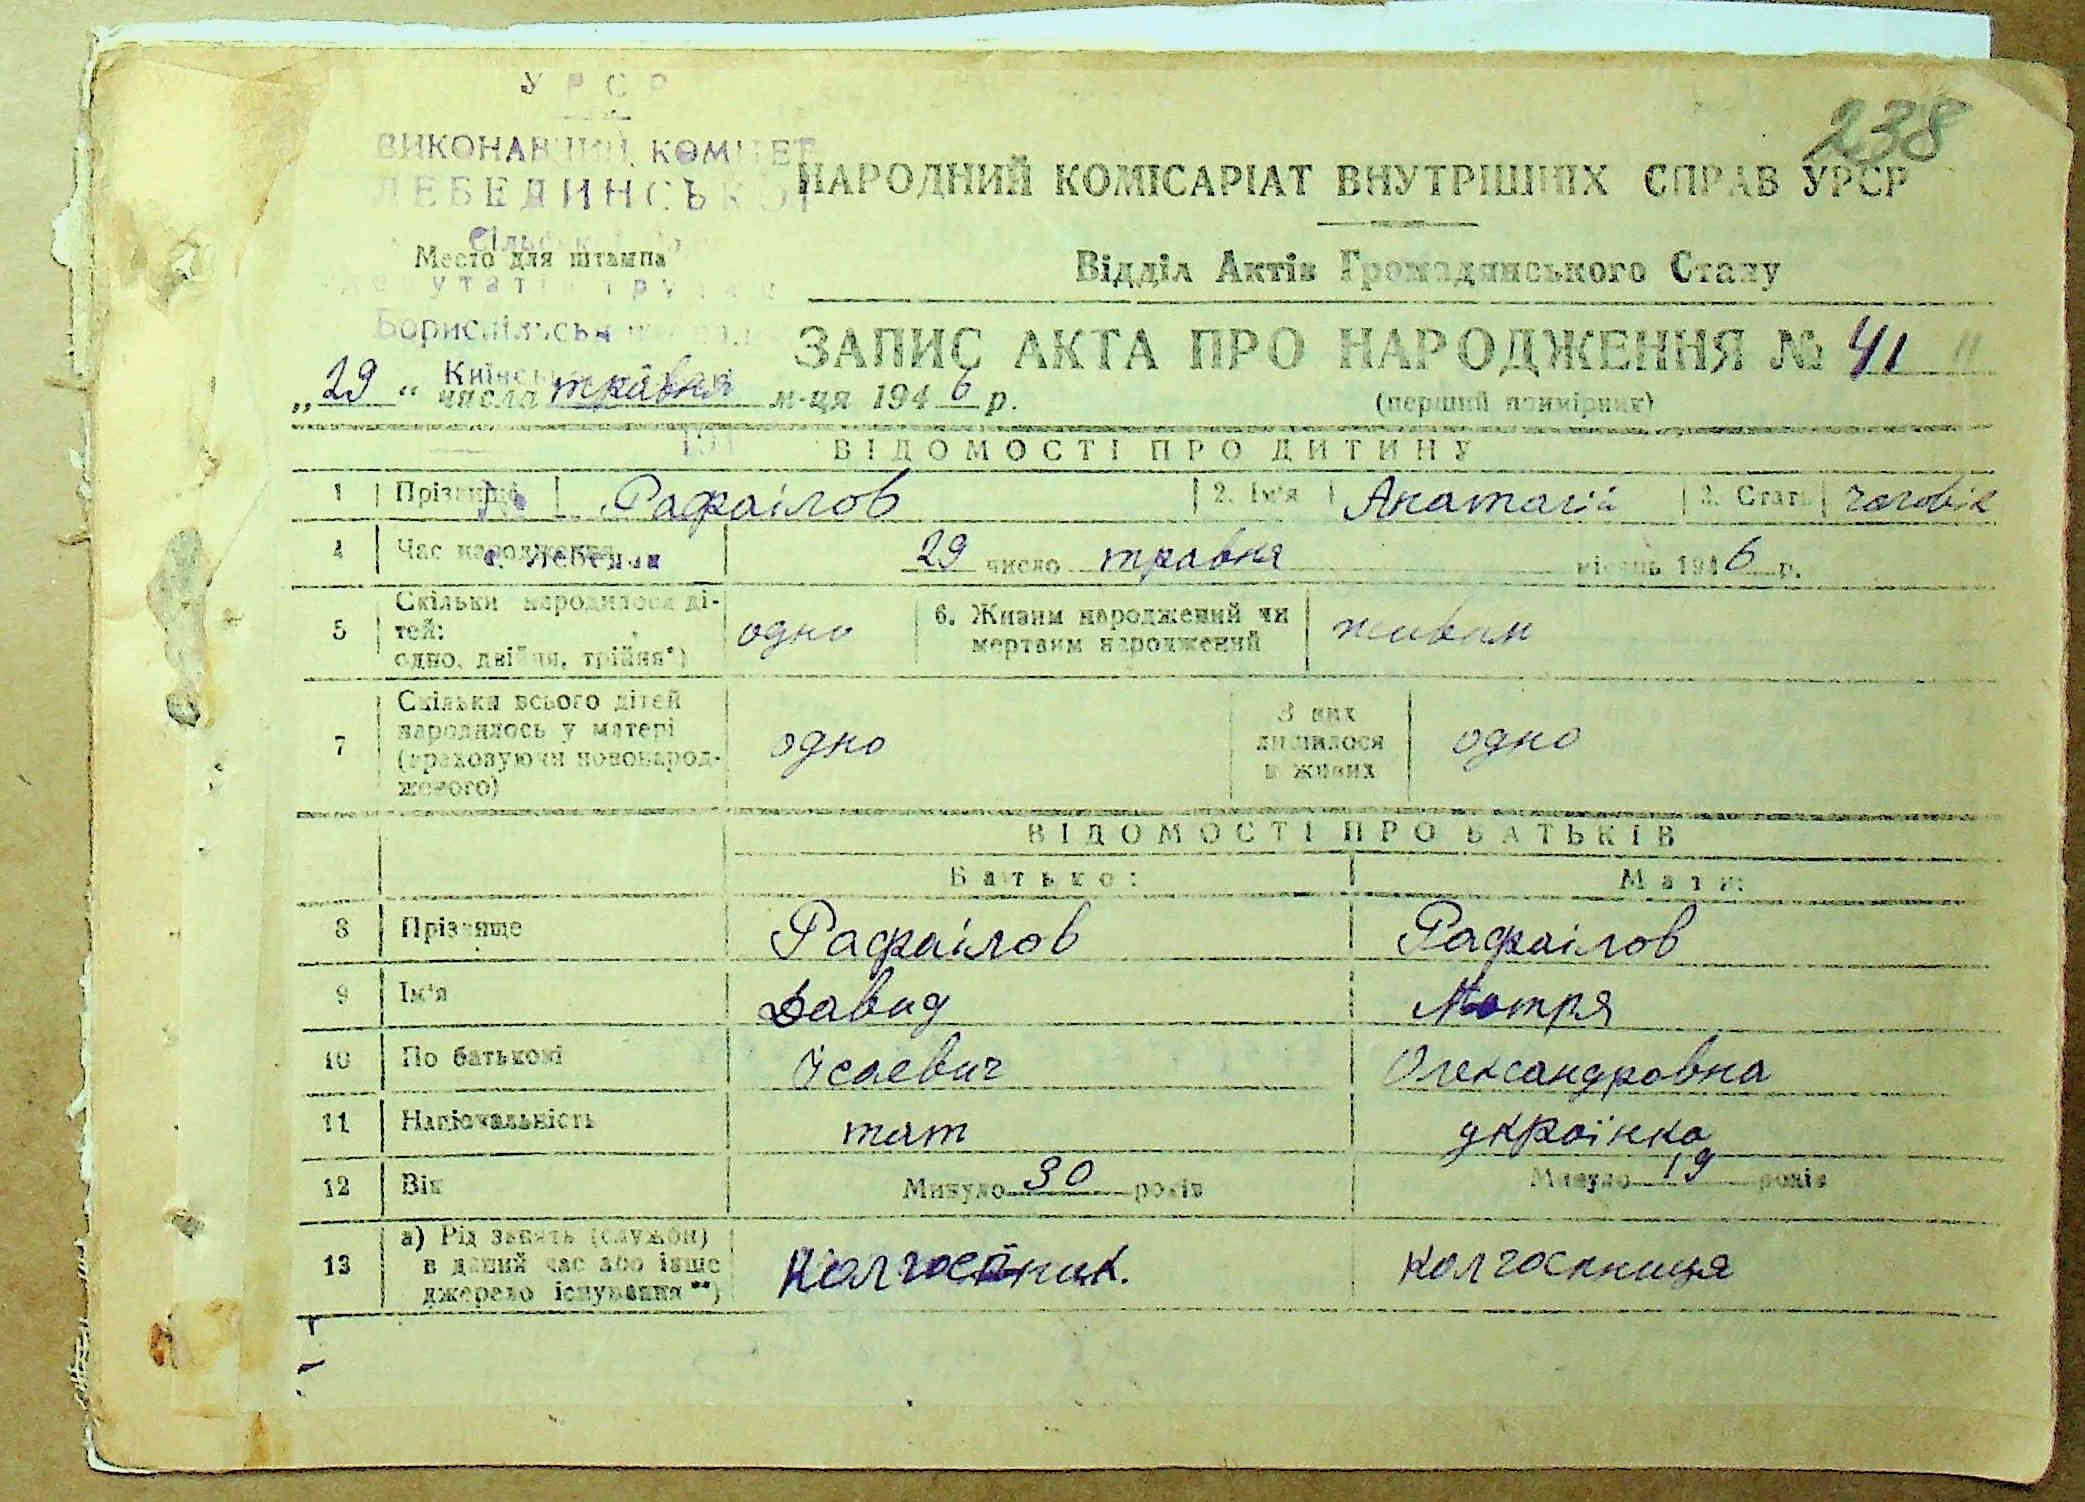 238
УРСР
ВИКОНАВЧИЙ КОМІТЕТ
ЛЕБЕДИНСЬКОЇ
НАРОДНИЙ КОМІСАРІАТ ВНУТРІШНІХ СПРАВ УРСР
Место для штампа
Відділ Актів Громадянського Стану
Бориспільськ
ЗАПИС АКТА ПРО НАРОДЖЕННЯ № 41
„29“ числа травня м-ця 1946 р.
(перший примірник)
ВІДОМОСТІ ПРО ДИТИНУ
1 Прізвище Рафаілов 2. Ім'я Анатолій 3. Стать чоловік
4 Час народження 29 число травня місяць 1946 р.
с. Лебедин
5 Скільки народилося ді-
тей:
одно, двійня, трійня*) одно 6. Живим народжений чи
мертвим народжений живим
7 Скільки всього дітей
народилось у матері
(враховуючи новонарод-
женого) одно З них
лишилося
в живих одно
ВІДОМОСТІ ПРО БАТЬКІВ
Батько: Мати:
8 Прізвище Рафаілов Рафаілов
9 Ім'я Давид Мотря
10 По батькові Ісаевич Олександровна
11 Національність тат украінка
12 Вік Минуло 30 років Минуло 19 років
13 а) Рід занять (служби)
в даний час або інше
джерело існування**) Колгоспник. колгоспниця